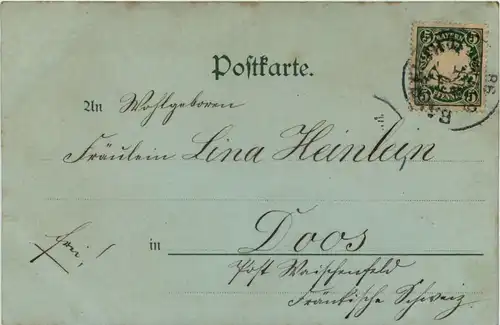 5 BAYERN 5
Postkarte.
An Wohlgeboren
Fräulein Lina Heinlein,
Frei!
in Doos
Post Waischenfeld
Fränkische Schweiz.